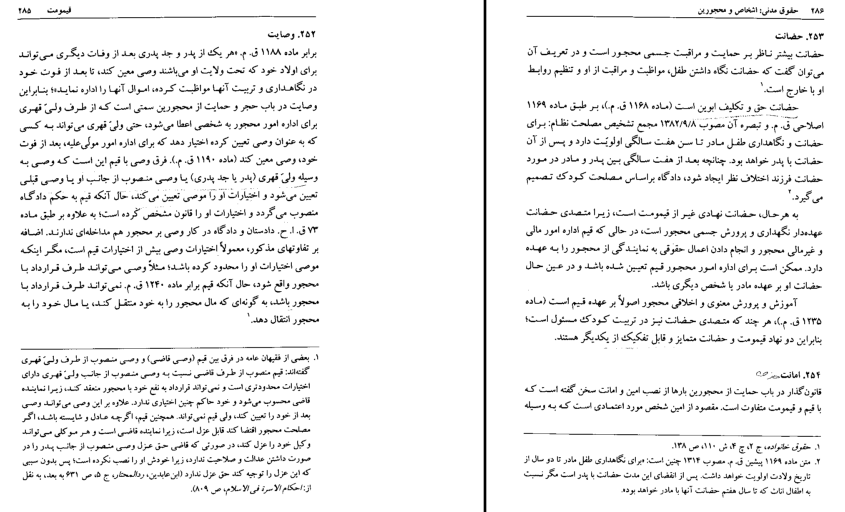 قیمومت ۲۸۵
۲۵۲. وصایت
برابر ماده ۱۱۸۸ ق. م. «هر یک از پدر و جد پدری بعد از وفات دیگری می‌تواند
برای اولاد خود که تحت ولایت او می‌باشند وصی معین کند، تا بعد از فوت خود
در نگاهداری و تربیت آنها مواظبت کرده، اموال آنها را اداره نماید»؛ بنابراین
وصایت در باب حجر و حمایت از محجورین سمتی است که از طرف ولیّ قهری
برای اداره امور محجور به شخصی اعطا می‌شود، حتی ولیّ قهری می‌تواند به کسی
که به عنوان وصی تعیین کرده اختیار دهد که برای اداره امور مولّی‌علیه، بعد از فوت
خود، وصی معین کند (ماده ۱۱۹۰ ق. م.). فرق وصی با قیم این است که وصی به
وسیله ولیّ قهری (پدر یا جد پدری) یا وصی منصوب از جانب او یا وصی قبلی
تعیین می‌شود و اختیارات او را موصی تعیین می‌کند، حال آنکه قیم به حکم دادگاه
منصوب می‌گردد و اختیارات او را قانون مشخص کرده است؛ به علاوه بر طبق ماده
۷۳ ق. ا. ح. دادستان و دادگاه در کار وصی بر محجور هم مداخله‌ای ندارند. اضافه
بر تفاوتهای مذکور، معمولاً اختیارات وصی بیش از اختیارات قیم است، مگر اینکه
موصی اختیارات او را محدود کرده باشد؛ مثلاً وصی می‌تواند طرف قرارداد با
محجور واقع شود، حال آنکه قیم برابر ماده ۱۲۴۰ ق. م. نمی‌تواند طرف قرارداد با
محجور باشد، به گونه‌ای که مال محجور را به خود منتقل کند، یا مال خود را به
محجور انتقال دهد.۱
۱. بعضی از فقیهان عامه در فرق بین قیم (وصی قاضی) و وصی منصوب از طرف ولیّ قهری
گفته‌اند: قیم منصوب از طرف قاضی نسبت به وصی منصوب از جانب ولیّ قهری دارای
اختیارات محدودتری است و نمی‌تواند قرارداد به نفع خود با محجور منعقد کند، زیرا نماینده
قاضی محسوب می‌شود و خود حاکم چنین اختیاری ندارد. علاوه بر این وصی می‌تواند وصی
بعد از خود را تعیین کند، ولی قیم نمی‌تواند. همچنین قیم، اگرچه عادل و شایسته باشد، اگر
مصلحت محجور اقتضا کند قابل عزل است، زیرا نماینده قاضی است و هر موکلی می‌تواند
وکیل خود را عزل کند، در صورتی که قاضی حق عزل وصی منصوب از جانب پدر را در
صورت داشتن عدالت و صلاحیت ندارد، زیرا خودش او را نصب نکرده است؛ پس بدون سببی
که این عزل را توجیه کند حق عزل ندارد (ابن‌عابدین، ردالمحتار، ج ۵، ص ۶۳۱ به بعد، به نقل
از: احکام الاسرة فی الاسلام، ص ۸۰۹).
۲۸۶ حقوق مدنی: اشخاص و محجورین
۲۵۳. حضانت
حضانت بیشتر ناظر بر حمایت و مراقبت جسمی محجور است و در تعریف آن
می‌توان گفت که حضانت نگاه داشتن طفل، مواظبت و مراقبت از او و تنظیم روابط
او با خارج است.۱
حضانت حق و تکلیف ابوین است (ماده ۱۱۶۸ ق. م.)، بر طبق ماده ۱۱۶۹
اصلاحی ق. م. و تبصره آن مصوب ۱۳۸۲/۹/۸ مجمع تشخیص مصلحت نظام: برای
حضانت و نگاهداری طفل مادر تا سن هفت سالگی اولویّت دارد و پس از آن
حضانت با پدر خواهد بود. چنانچه بعد از هفت سالگی بین پدر و مادر در مورد
حضانت فرزند اختلاف نظر ایجاد شود، دادگاه براساس مصلحت کودک تصمیم
می‌گیرد.۲
به هرحال، حضانت نهادی غیر از قیمومت است، زیرا متصدی حضانت
عهده‌دار نگهداری و پرورش جسمی محجور است، در حالی که قیم اداره امور مالی
و غیرمالی محجور و انجام دادن اعمال حقوقی به نمایندگی از محجور را به عهده
دارد. ممکن است برای اداره امور محجور قیم تعیین شده باشد و در عین حال
حضانت او بر عهده مادر یا شخص دیگری باشد.
آموزش و پرورش معنوی و اخلاقی محجور اصولاً بر عهده قیم است (ماده
۱۲۳۵ ق. م.)، هر چند که متصدی حضانت نیز در تربیت کودک مسئول است؛
بنابراین دو نهاد قیمومت و حضانت متمایز و قابل تفکیک از یکدیگر هستند.
۲۵۴. امانت
قانون‌گذار در باب حمایت از محجورین بارها از نصب امین و امانت سخن گفته است که
با قیم و قیمومت متفاوت است. مقصود از امین شخص مورد اعتمادی است که به وسیله
۱. حقوق خانواده، ج ۲، چ ۴، ش ۱۱۰، ص ۱۳۸.
۲. متن ماده ۱۱۶۹ پیشین ق. م. مصوب ۱۳۱۴ چنین است: «برای نگاهداری طفل مادر تا دو سال از
تاریخ ولادت اولویت خواهد داشت. پس از انقضای این مدت حضانت با پدر است مگر نسبت
به اطفال اناث که تا سال هفتم حضانت آنها با مادر خواهد بود».